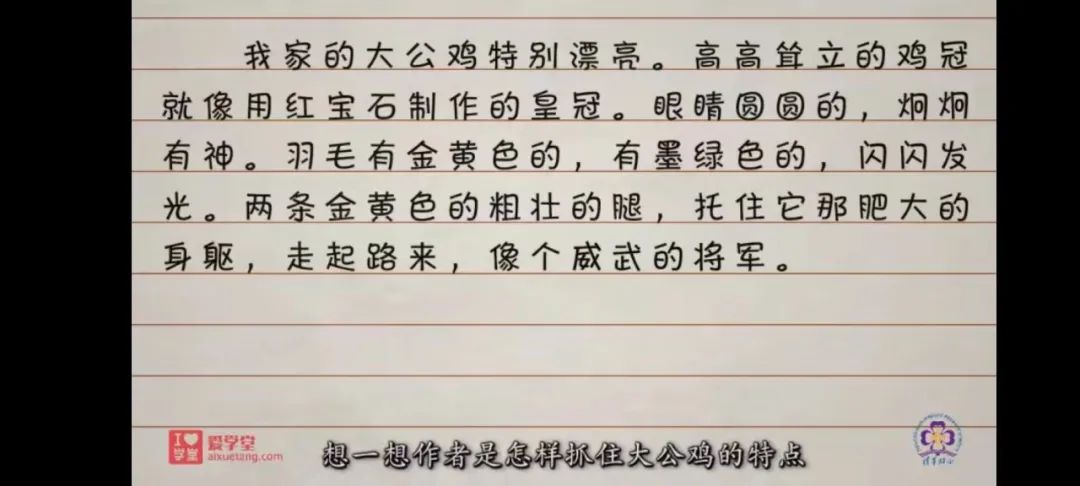 我家的大公鸡特别漂亮。高高耸立的鸡冠
就像用红宝石制作的皇冠。眼睛圆圆的，炯炯
有神。羽毛有金黄色的，有墨绿色的，闪闪发
光。两条金黄色的粗壮的腿，托住它那肥大的
身躯，走起路来，像个威武的将军。
I❤
学堂
爱学堂
aixuetang.com
想一想作者是怎样抓住大公鸡的特点